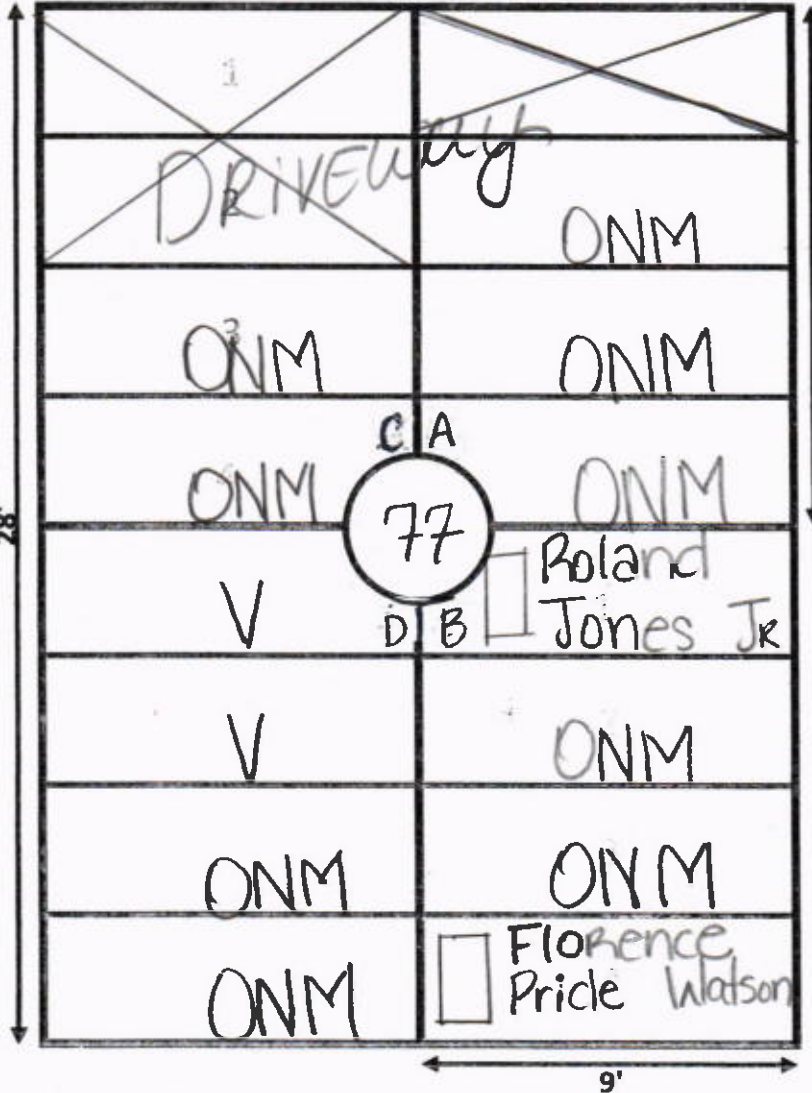 1
DRiVEWay
2
ONM
3
ONM
ONM
C A
ONM
ONM
77
28'
V
Roland
Jones JR
D B
V
ONM
ONM
ONM
ONM
Florence
Pricle Watson
9'